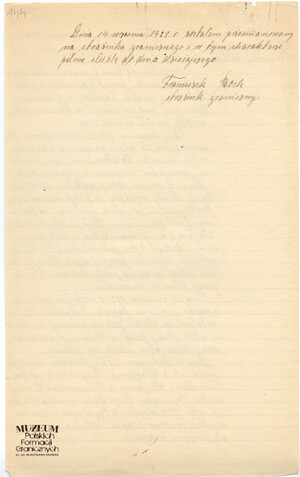 Dnia 14 września 1928 r. zostałem przemianowany
na strażnika granicznego i w tym charakterze
pełnię służbę do dnia dzisiejszego.
Franciszek
strażnik graniczny
MUZEUM
Polskich
Formacji
Granicznych